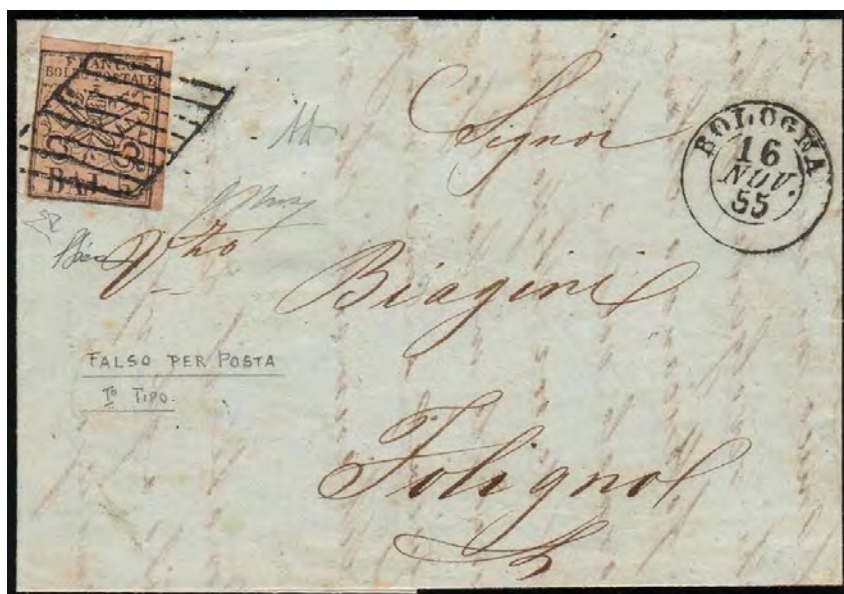 FRANCO
BOLLO POSTALE
BAI. 8
Signor
BOLOGNA
16
NOV.
55
Biagini
FALSO PER POSTA
I° TIPO.
Foligno